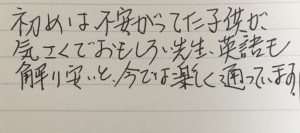 初めは不安がってた子供が
気さくでおもしろい先生、英語も
解り安いと、今では楽しく通っています。